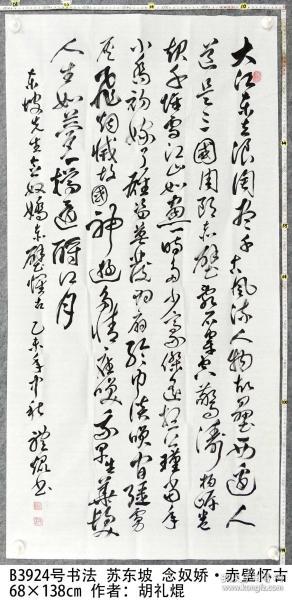 大江东去浪淘尽千古风流人物故垒西边人
道是三國周郎赤壁乱石穿空惊涛拍岸卷
起千堆雪江山如画一时多少豪傑遥想公瑾当年
小乔初嫁了雄姿英发羽扇纶巾谈笑间强虏
灰飞烟灭故國神游多情应笑我早生华发
人生如梦一樽还酹江月
东坡先生念奴娇赤壁怀古乙未年中秋礼焜书
B3924号书法 苏东坡 念奴娇·赤壁怀古
68×138cm 作者：胡礼焜